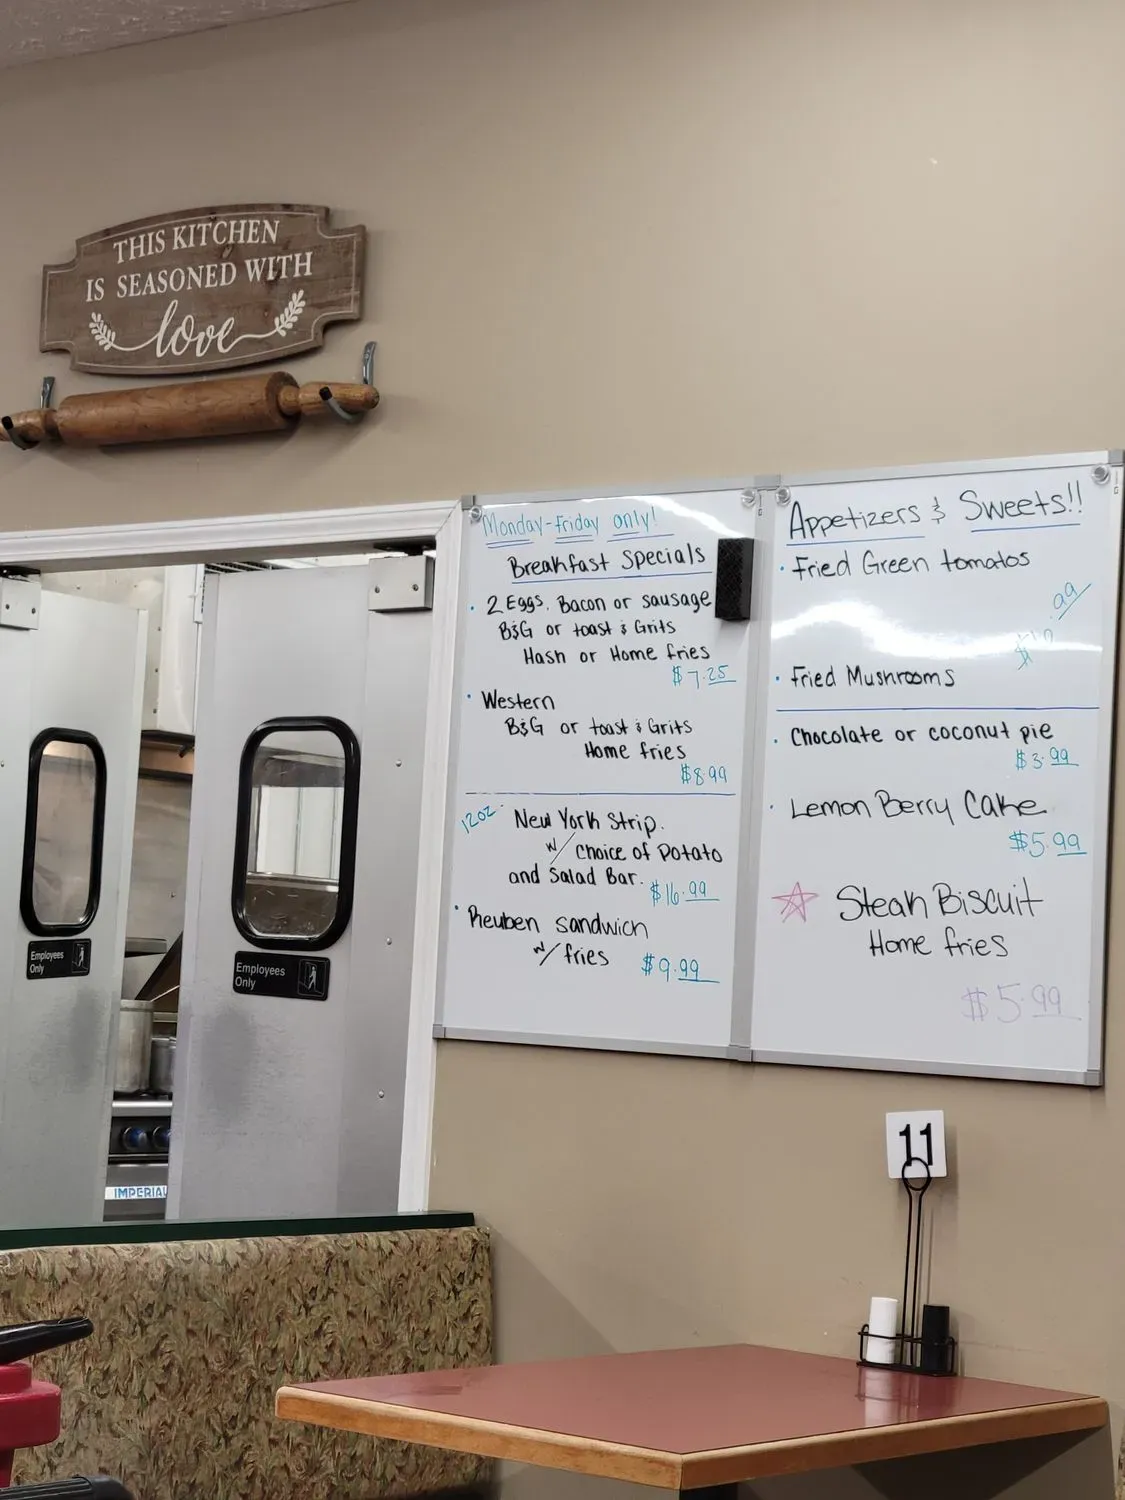 THIS KITCHEN
IS SEASONED WITH
love
Monday-Friday only!
Breakfast Specials
2 Eggs, Bacon or sausage
B&G or toast & Grits
Hash or Home fries
$7.25
Western
B&G or toast & Grits
Home fries
$8.99
12oz. New York Strip.
w/ Choice of Potato
and Salad Bar. $16.99
Reuben sandwich
w/ fries $9.99
Appetizers & Sweets!!
Fried Green tomatos
.99
Fried Mushrooms
Chocolate or coconut pie
$3.99
Lemon Berry Cake
$5.99
Steak Biscuit
Home fries
$5.99
Employees
Only
Employees
Only
IMPERIAL
11